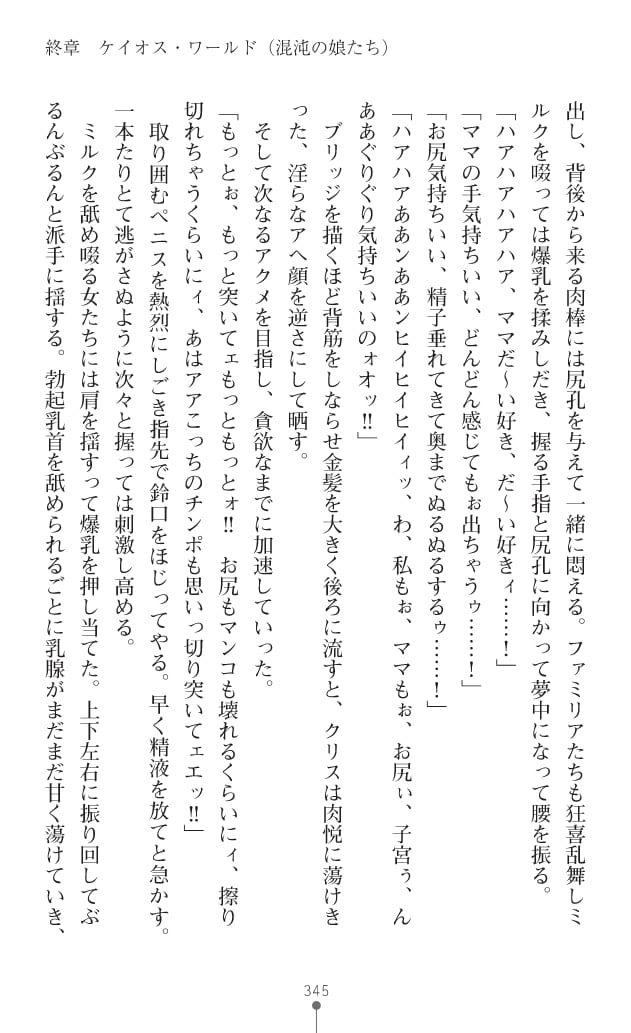 終章　ケイオス・ワールド（混沌の娘たち）
出し、背後から来る肉棒には尻孔を与えて一緒に悶える。ファミリアたちも狂喜乱舞しミ
ルクを啜っては爆乳を揉みしだき、握る手指と尻孔に向かって夢中になって腰を振る。
「ハアハアハアハア、ママだ〜い好き、だ〜い好きィ……！」
「ママの手気持ちいい、どんどん感じてもぉ出ちゃうゥ……！」
「お尻気持ちいい、精子垂れてきて奥までぬるぬるするゥ……！」
「ハアハアああンああンヒイヒイヒイィッ、わ、私もぉ、ママもぉ、お尻ぃ、子宮ぅ、ん
ああぐりぐり気持ちいいのォオッ!!」
ブリッジを描くほど背筋をしならせ金髪を大きく後ろに流すと、クリスは肉悦に蕩けき
った、淫らなアヘ顔を逆さにして晒す。
そして次なるアクメを目指し、貪欲なまでに加速していった。
「もっとぉ、もっと突いてェもっともっとォ!!　お尻もマンコも壊れるくらいにィ、擦り
切れちゃうくらいにィ、あはアアこっちのチンポも思いっ切り突いてェエッ!!」
取り囲むペニスを熱烈にしごき指先で鈴口をほじってやる。早く精液を放てと急かす。
一本たりとて逃がさぬように次々と握っては刺激し高める。
ミルクを舐め啜る女たちには肩を揺すって爆乳を押し当てた。上下左右に振り回してぶ
るんぶるんと派手に揺する。勃起乳首を舐められるごとに乳腺がまだまだ甘く蕩けていき、
345